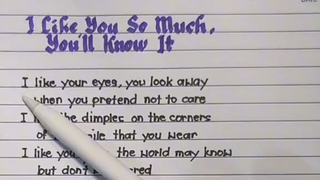 I Like You So Much,
You'll Know It
I like your eyes, you look away
when you pretend not to care
I the dimples on the corners
of that you wear
I like the world may know
but don't